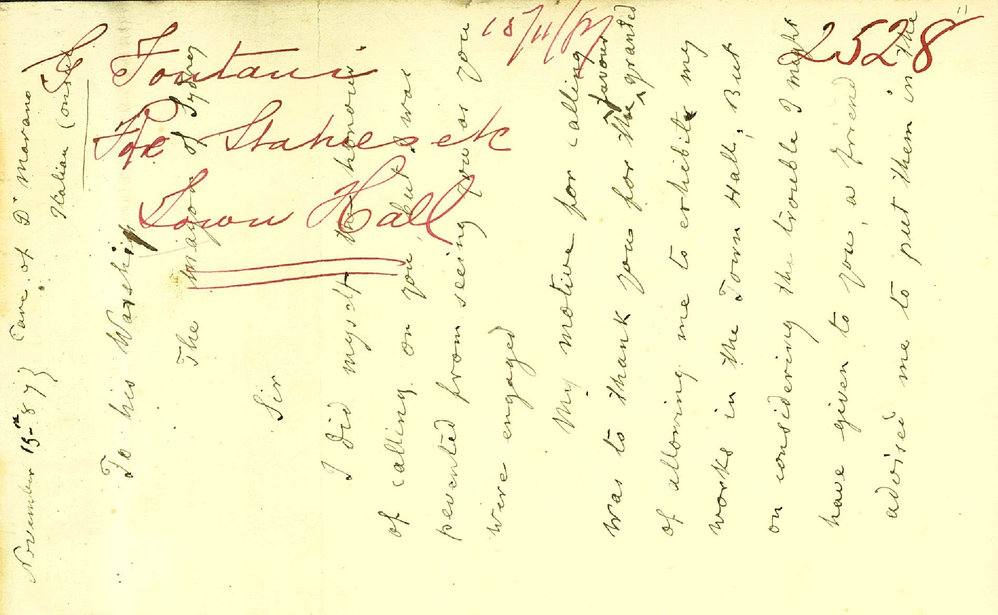 18/11/87
2528
G Fontani
For Statues etc
Town Hall
November 15-87} Care of Dr Marano
Italian Consul
To his Worship
The Mayor of Sydney
Sir
I did myself the honour
of calling on you, but was
pevented from seeing you as you
were engaged
My motive for calling
was to thank you for the favour granted
of allowing me to exhibit my
works in the Town Hall; But
on considering the trouble I might
have given to you, a friend
advised me to put them in the